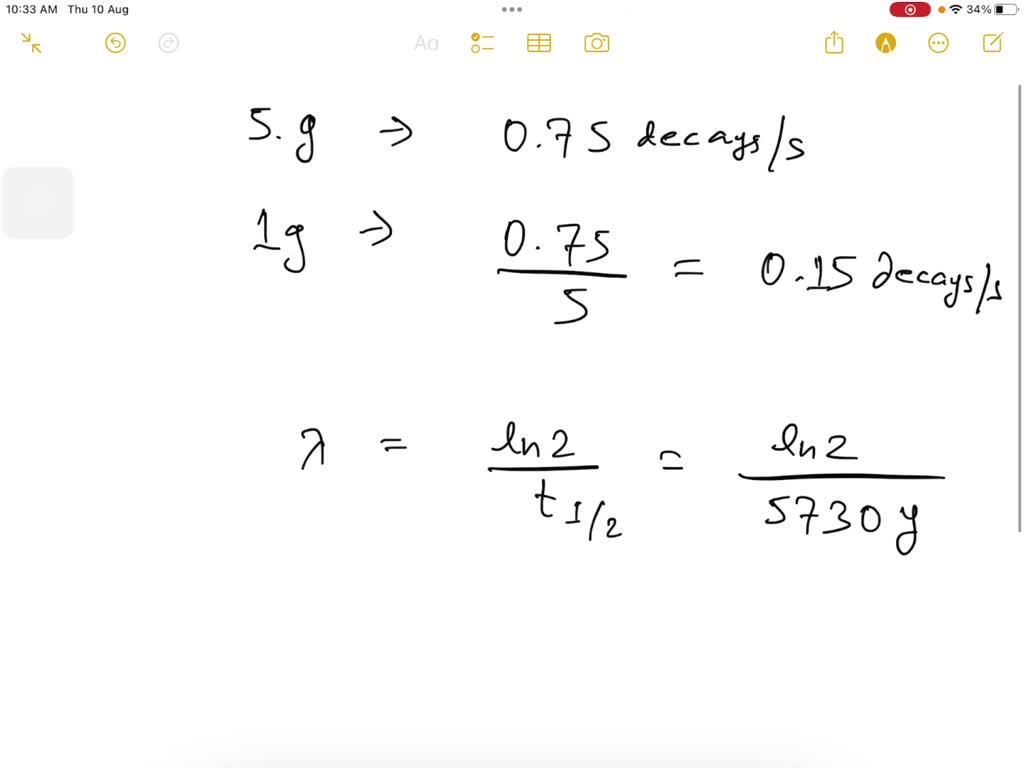 10:33 AM Thu 10 Aug 34%
Aa
5. g → 0.75 decays/s
1g → 0.75 / 5 = 0.15 decays/s
λ = ln2 / t1/2 = ln2 / 5730 y